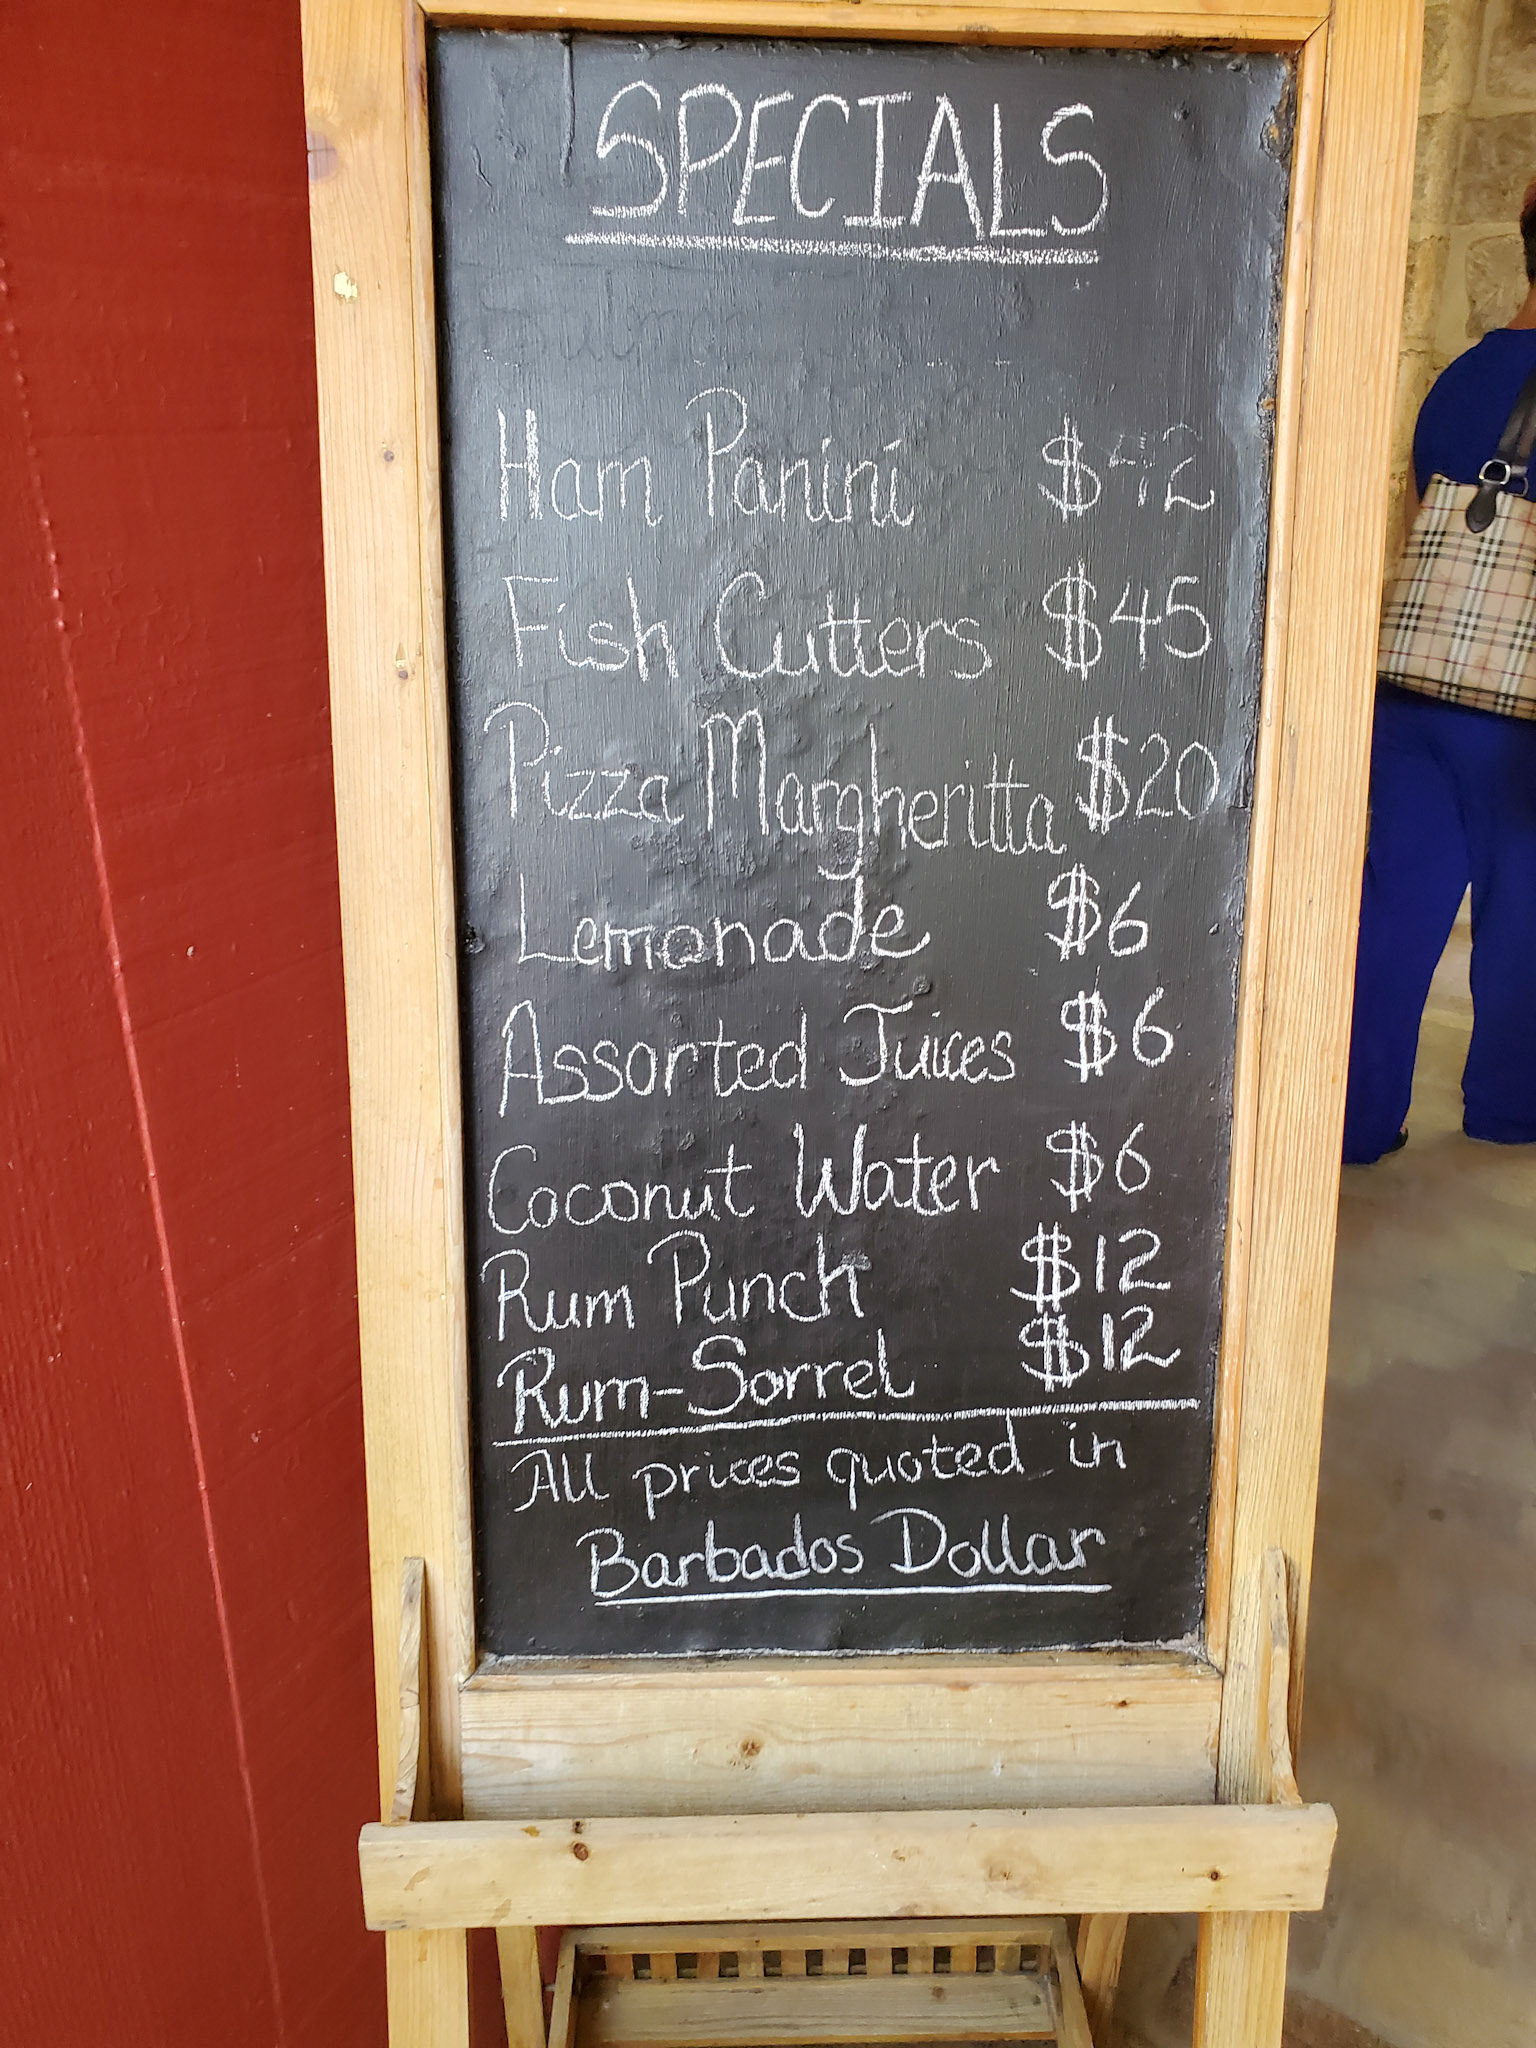 SPECIALS
Ham Panini $42
Fish Cutters $45
Pizza Margheritta $20
Lemonade $6
Assorted Juices $6
Coconut Water $6
Rum Punch $12
Rum-Sorrel $12
All prices quoted in
Barbados Dollar